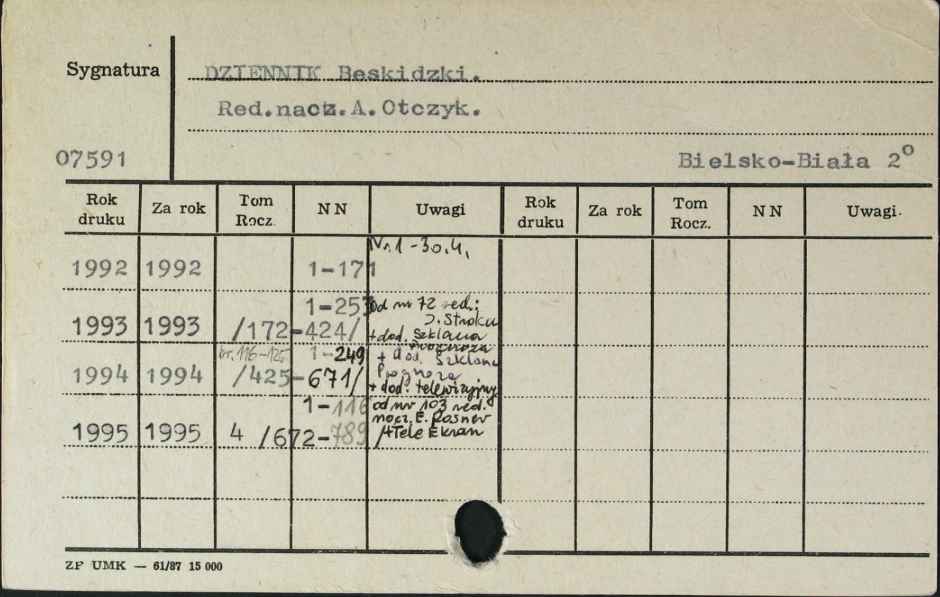 Sygnatura
DZIENNIK Beskidzki.
Red.nacz.A.Otczyk.
07591
Bielsko-Biała 2°
Rok druku Za rok Tom Rocz. NN Uwagi Rok druku Za rok Tom Rocz. NN Uwagi.
Nr.1-30.4.
1992 1992 1-171
1-253 od nr 72 red.:
J. Stroku
1993 1993 /172-424/ +dod. Szklana
Prognoza
nr. 116-125 1-249 + dod. Szklana
1994 1994 /425-671/ Prognoza
+ dod. telewizyjny
1-116 od nr 103 red.
nacz. E. Rosner
1995 1995 4 /672-789 /+Tele Ekran
ZP UMK — 61/87 15 000